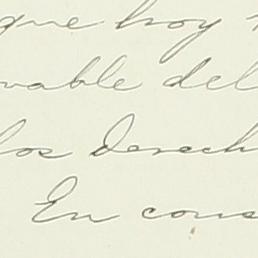 que hoy
vable del
los derech
En cons